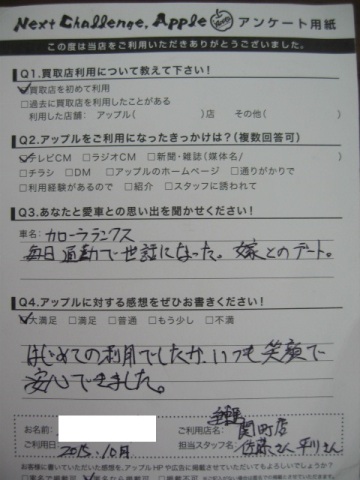 Next Challenge, Apple アンケート用紙
この度は当店をご利用いただきありがとうございました。
Q1.買取店利用について教えて下さい!
☑買取店を初めて利用
□過去に買取店を利用したことがある
利用した店舗: アップル( )店 その他( )
Q2.アップルをご利用になったきっかけは?(複数回答可)
☑テレビCM □ラジオCM □新聞・雑誌(媒体名/ )
□チラシ □DM □アップルのホームページ □通りがかりで
□利用経験があるので □紹介 □スタッフに誘われて
Q3.あなたと愛車との思い出を聞かせください!
車名: カローラランクス
毎日通勤で世話になった。嫁とのデート。
Q4.アップルに対する感想をぜひお書きください!
☑大満足 □満足 □普通 □もう少し □不満
はじめての利用でしたが、いつも笑顔で
安心できました。
お名前: ご利用店名: 関町店
ご利用日: 2015.10月 担当スタッフ名: 佐藤さん 平川さん
お客様に書いていただいた感想を、アップルHPや広告に掲載させていただいてもよろしいでしょうか?